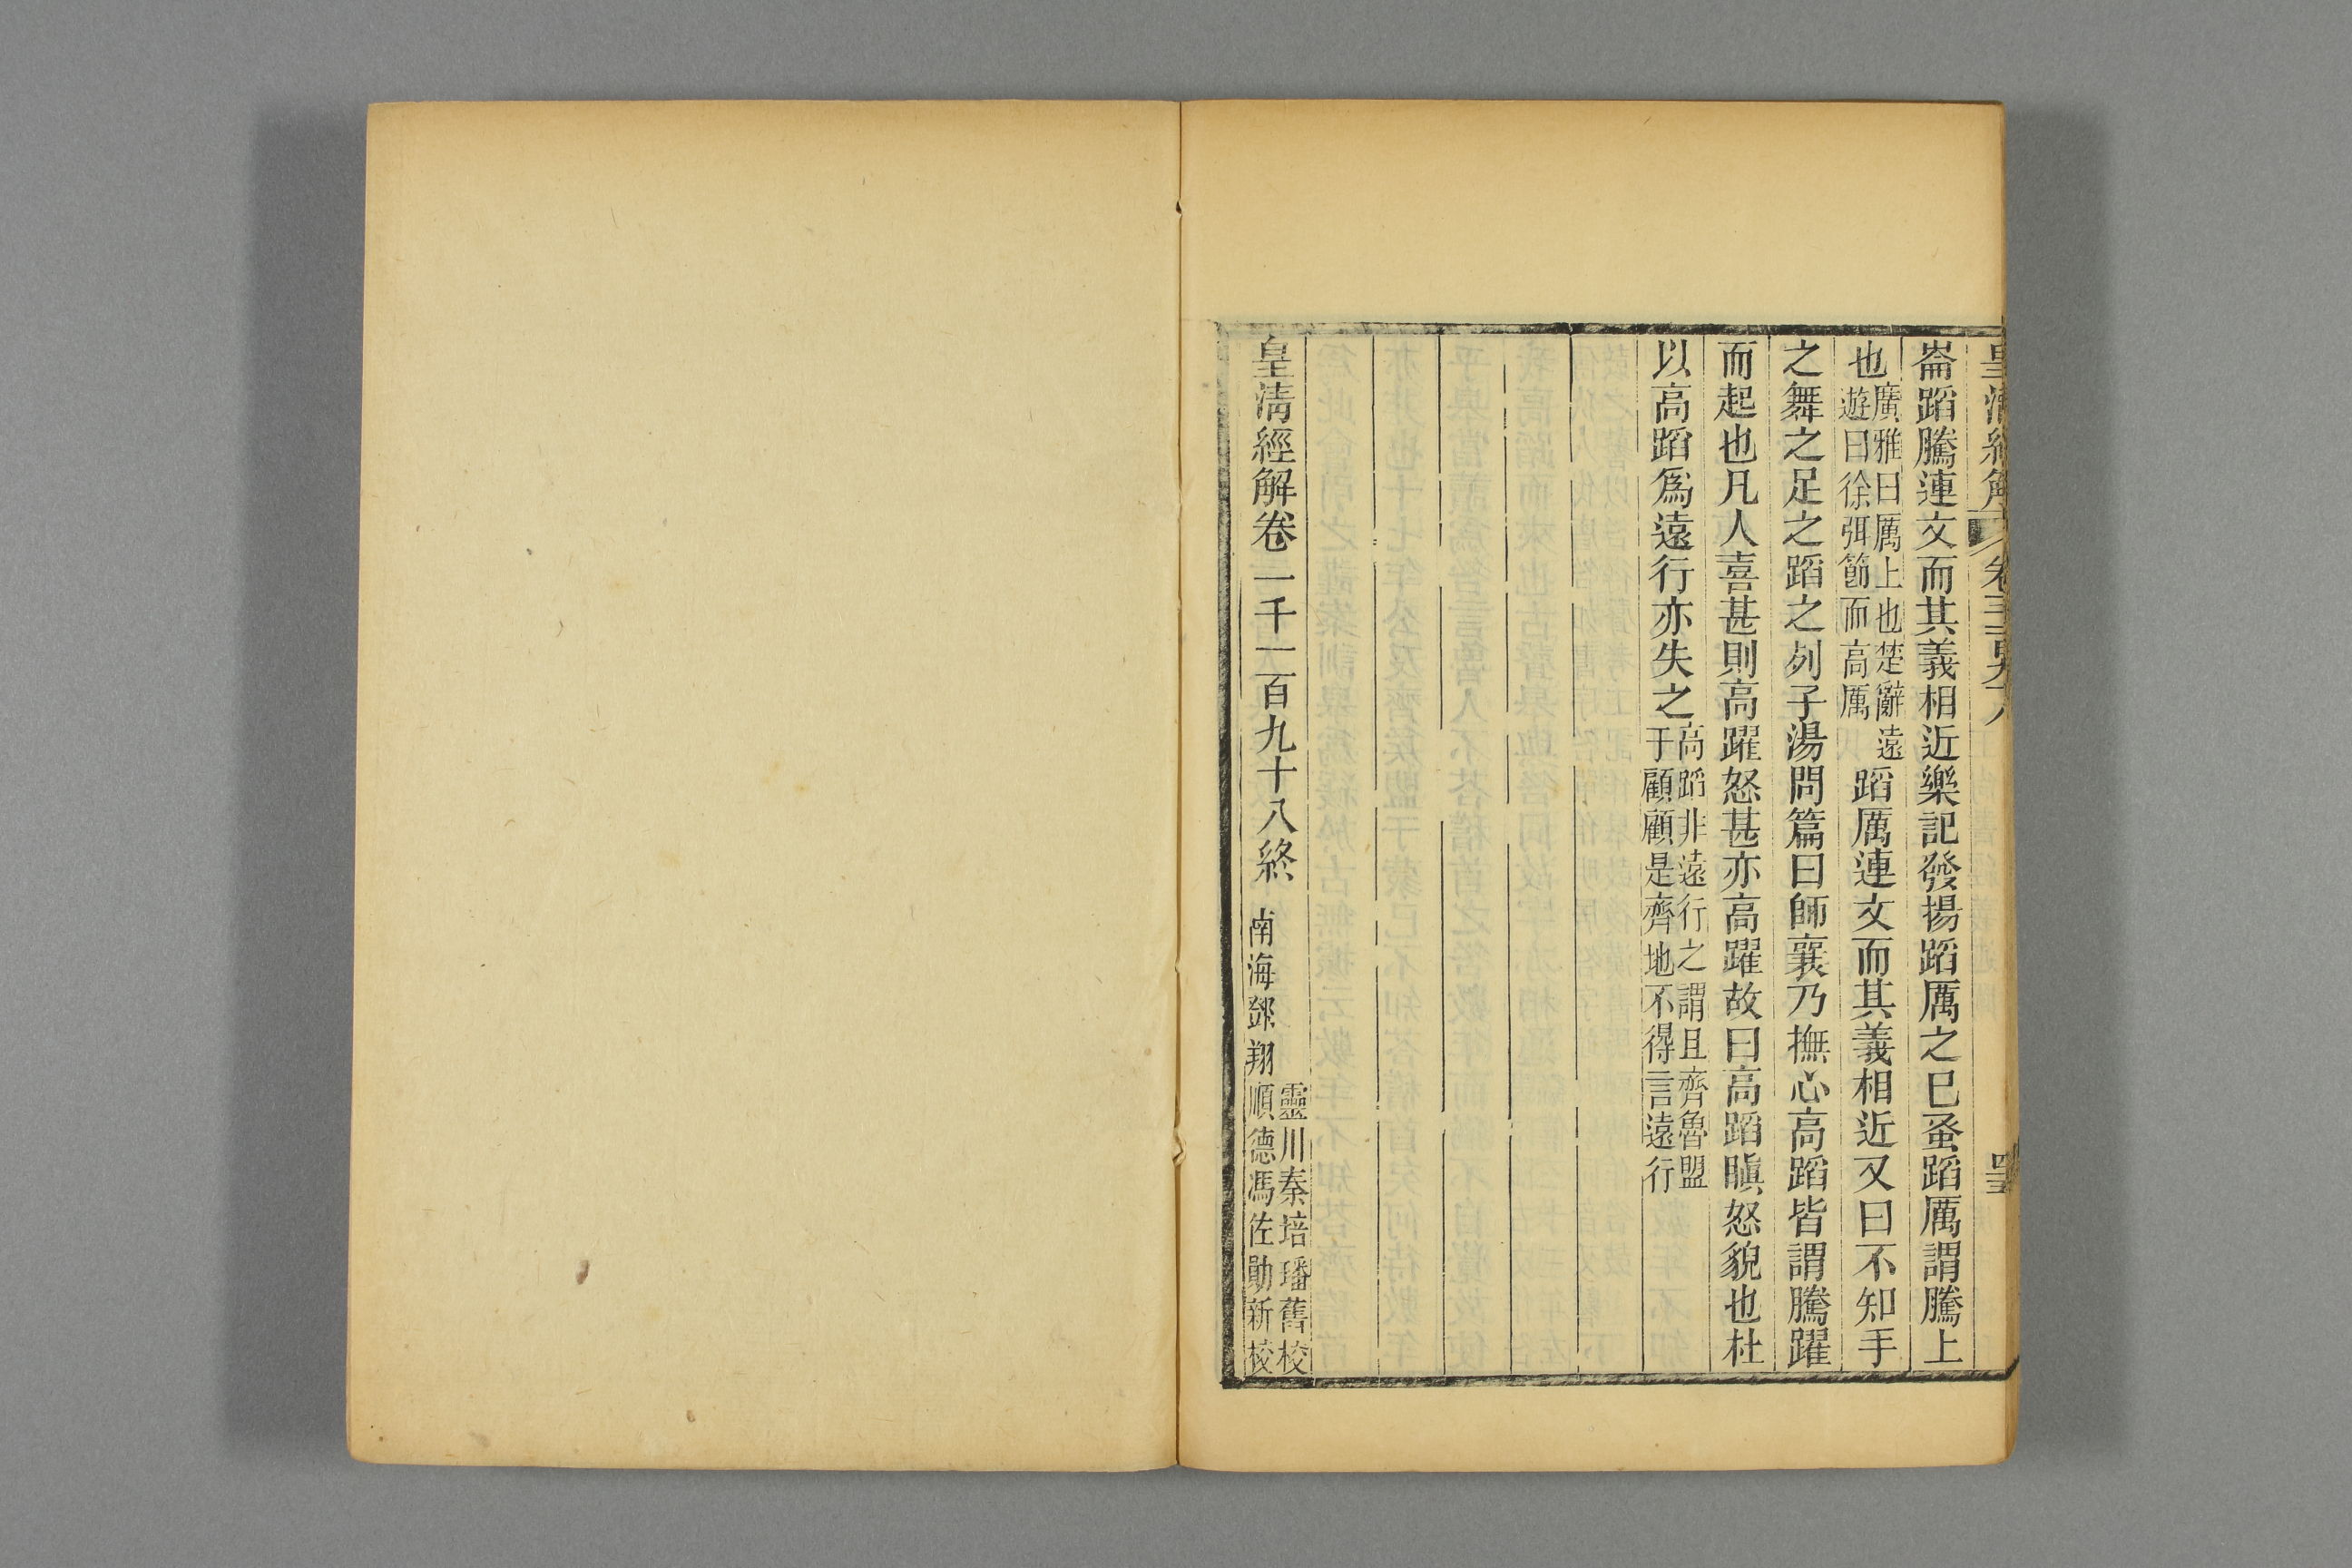 皇淸經解
崙蹈騰連文而其義相近樂記發揚蹈厲之已蚤蹈厲謂騰上
也廣雅曰厲上也楚辭遠
遊曰徐弭節而高厲蹈厲連文而其義相近又曰不知手
之舞之足之蹈之列子湯問篇曰師襄乃撫心高蹈皆謂騰躍
而起也凡人喜甚則高躍怒甚亦高躍故曰高蹈瞋怒貌也杜
以高蹈爲遠行亦失之高蹈非遠行之謂且齊魯盟
于顧顧是齊地不得言遠行
皇淸經解卷一千一百九十八終
南海鄧翔
靈川秦培璠舊校
順德馮佐勛新校